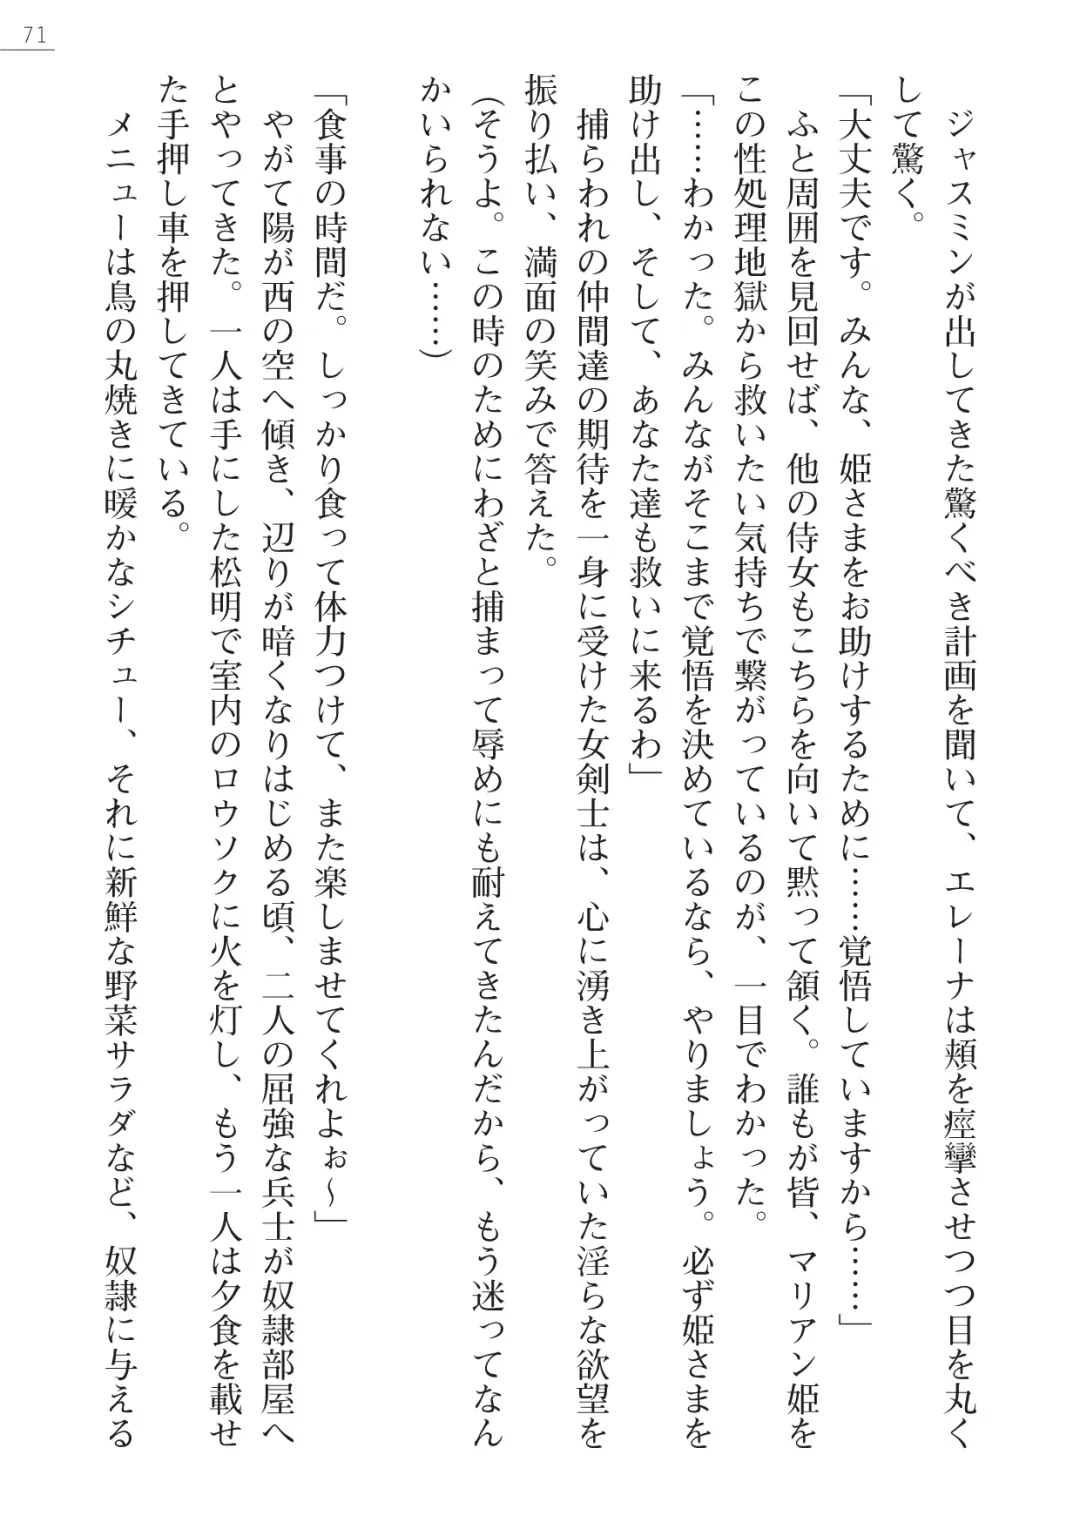 71
　ジャスミンが出してきた驚くべき計画を聞いて、エレーナは頬を痙攣させつつ目を丸く
して驚く。
「大丈夫です。みんな、姫さまをお助けするために……覚悟していますから……」
　ふと周囲を見回せば、他の侍女もこちらを向いて黙って頷く。誰もが皆、マリアン姫を
この性処理地獄から救いたい気持ちで繋がっているのが、一目でわかった。
「……わかった。みんながそこまで覚悟を決めているなら、やりましょう。必ず姫さまを
助け出し、そして、あなた達も救いに来るわ」
　捕らわれの仲間達の期待を一身に受けた女剣士は、心に湧き上がっていた淫らな欲望を
振り払い、満面の笑みで答えた。
（そうよ。この時のためにわざと捕まって辱めにも耐えてきたんだから、もう迷ってなん
かいられない……）
「食事の時間だ。しっかり食って体力つけて、また楽しませてくれよぉ～」
　やがて陽が西の空へ傾き、辺りが暗くなりはじめる頃、二人の屈強な兵士が奴隷部屋へ
とやってきた。一人は手にした松明で室内のロウソクに火を灯し、もう一人は夕食を載せ
た手押し車を押してきている。
　メニューは鳥の丸焼きに暖かなシチュー、それに新鮮な野菜サラダなど、奴隷に与える